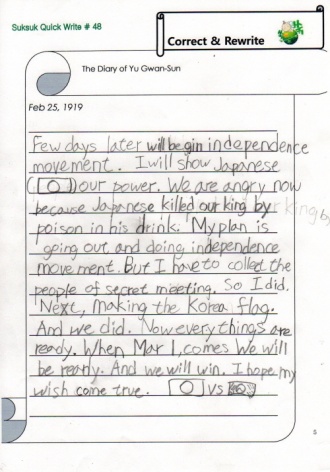 Suksuk Quick Write # 48
Correct & Rewrite
The Diary of Yu Gwan-Sun
Feb 25, 1919
Few days later will begin independence
movement. I will show Japanese
our power. We are angry now
because Japanese killed our king by
poison in his drink. My plan is
going out and doing independence
movement. But I have to colled the
people of secret meeting. So I did.
Next, making the Korea flag.
And we did. Now every things are
ready. When Mar 1, comes We will
be ready. And we will win. I hope my
wish come true. VS
5